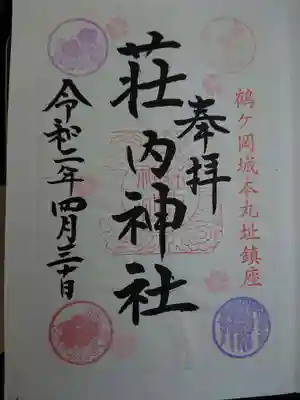 鶴ヶ岡城本丸址鎮座
奉拝
荘内神社
令和二年四月三十日